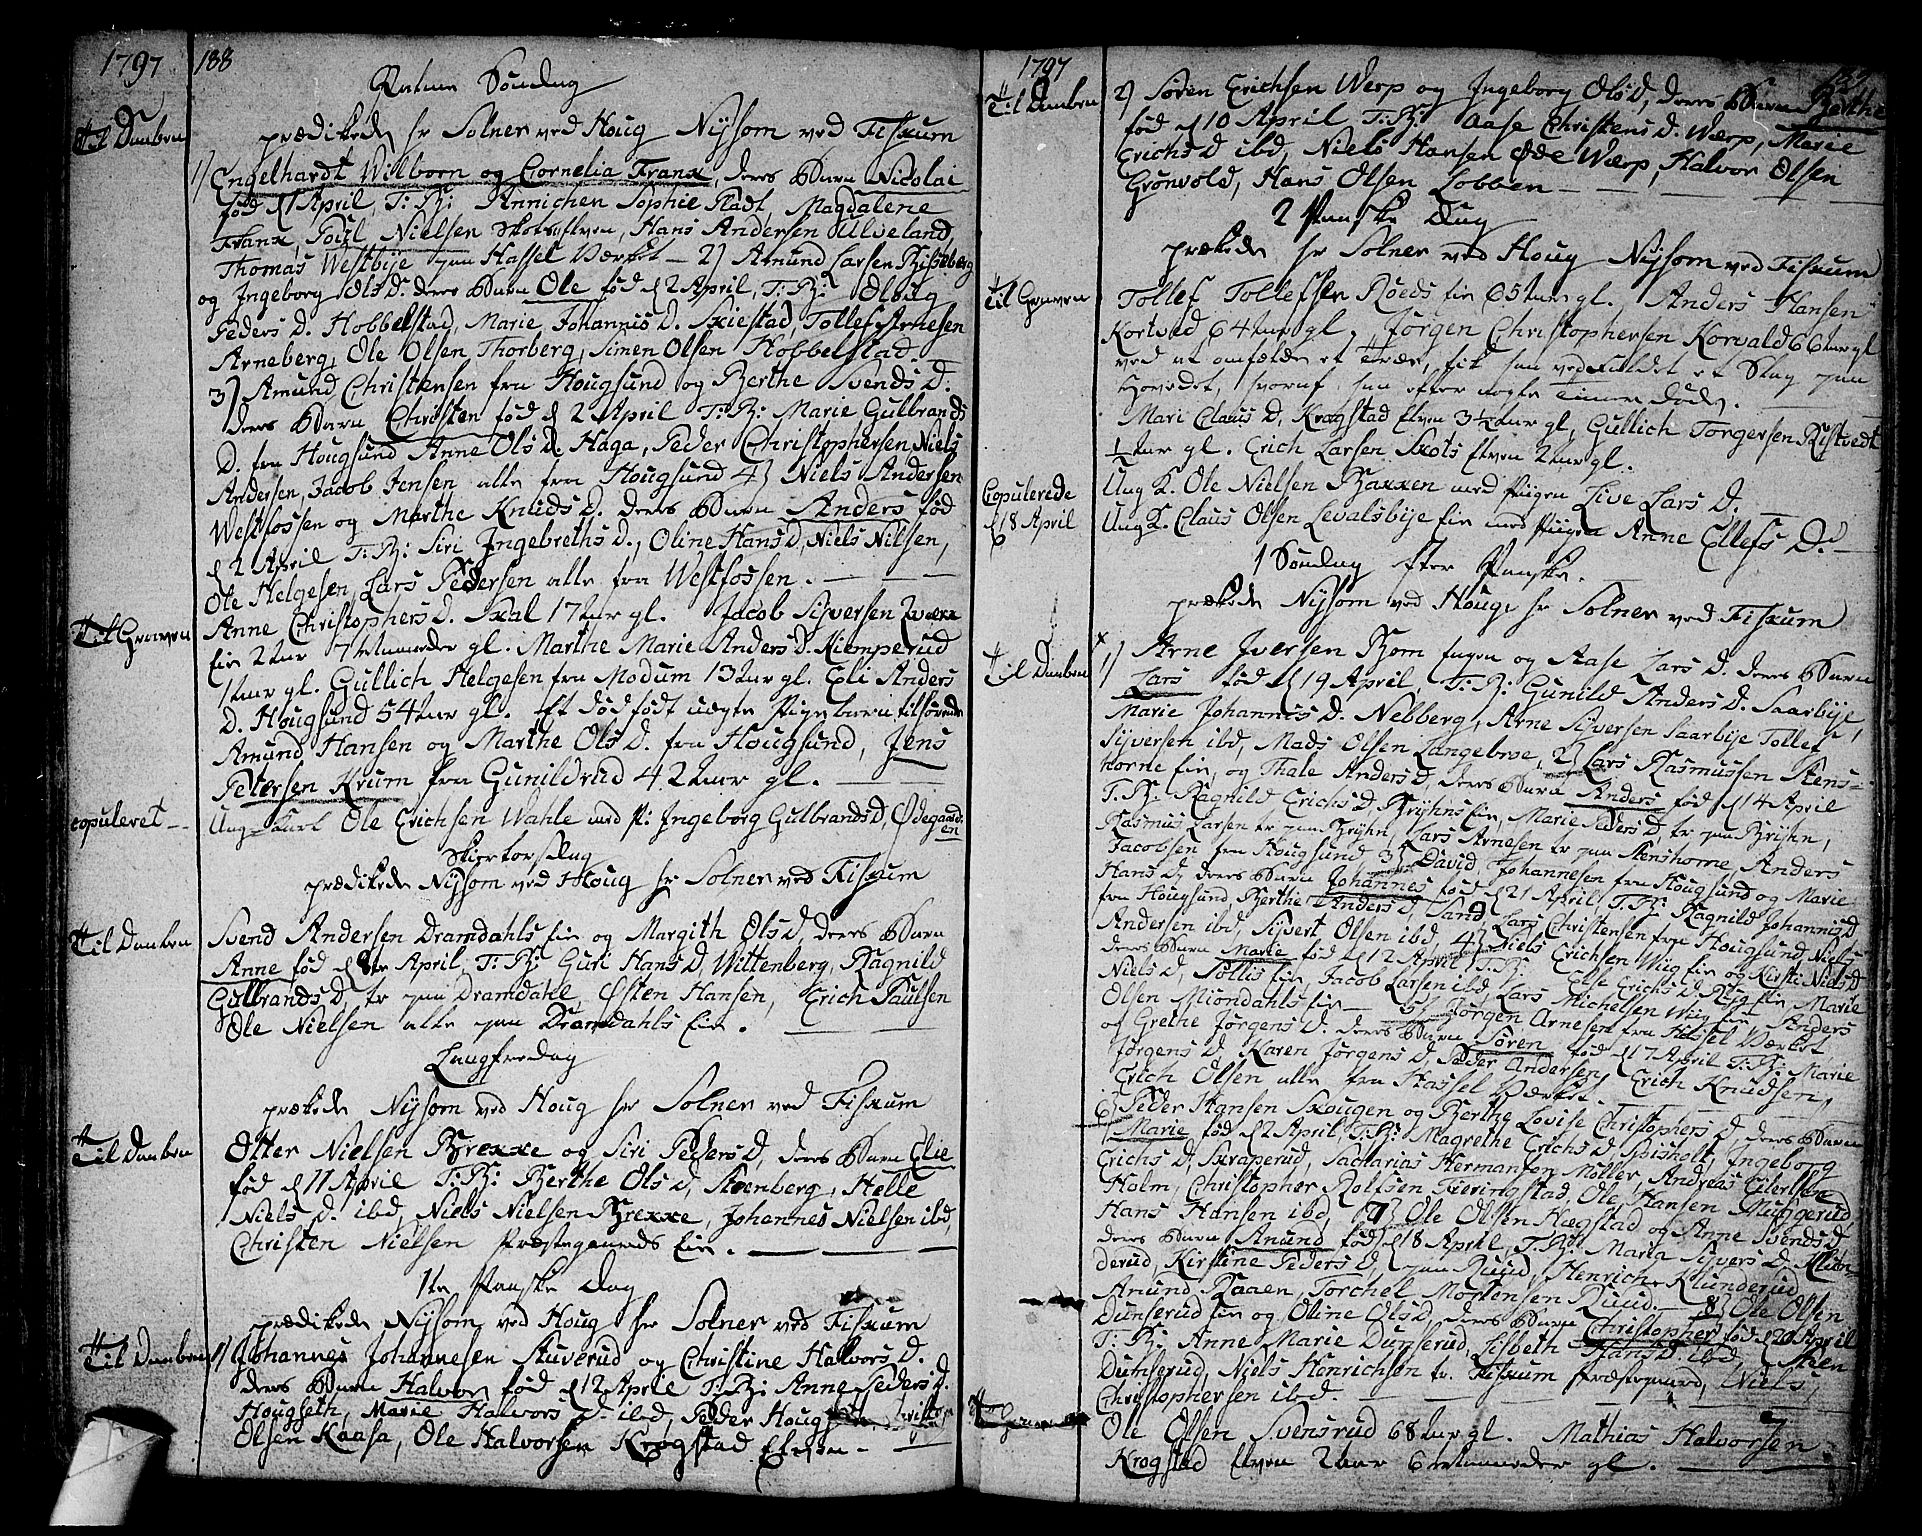 1797 188
Palme Søndag
Til Daaben
prædikede hr Solner ved Houg Nysom ved Fiskum
1) Engelhardt Wilborn og Cornelia Franx, deres Barn Nicolai
fød d 1 April, T: B: Annichen Sophie Fladt, Magdalene
Franx, Poul Nielsen Skotselven, Hans Andersen Ulveland
Thomas Westbye paa Hassel Værket – 2) Amund Larsen
og Ingeborg Ols D. deres Barn Ole fød d 2 April, T: B: Oloug
Peders D. Hobbelstad, Marie Johannis D. Skiestad, Tollef Arnesen
Arneberg, Ole Olsen Thorberg, Simen Olsen Hobbelstad.
3) Amund Christensen fra Hougsund og Berthe Svends D.
deres Barn Christen fød d 2 April T: B: Marie Gulbrands
D. fra Hougsund Anne Ols D. Haga, Peder Christophersen Niels
Andersen, Jacob Jensen alle fra Hougsund 4) Niels Andersen
Westfossen og Marthe Knuds D. deres Barn Anders fød
d 2 April T: B: Siri Ingebreths D., Oline Hans D, Niels Nilsen,
Ole Helgesen, Lars Pedersen alle fra Westfossen.
Til Graven
Anne Christophers D. Skal 17 aar gl. Jacob Siversen
Eie 2 aar 7 Maaneder gl. Marthe Marie Anders D. Kiemperud
1 aar gl. Gullich Helgesen fra Modum 13 aar gl. Eli Anders
D. Hougsund 54 aar gl. Et dødfødt uægte Pigebarn tilhørende
Amund Hansen og Marthe Ols D. fra Hougsund, Jens
Petersen Krum fra Gunildrud 42 aar gl.
copuleret
Ung Karl Ole Erichsen Wahle med Pi: Ingeborg Gulbrands D, Ødegaarden
Skiertorsdag
prædikede Nysom ved Houg hr Solner ved Fiskum
Til Daaben
Svend Andersen Dramdahls Eie og Margith Ols D, deres Barn
Anne fød d 8de April, T: B: Guri Hans D, Wittenberg, Ragnild
Gulbrands D, tr paa Dramdahl, Østen Hansen, Erich Paulsen
Ole Nielsen alle paa Dramdahls Eie.
Langfredag
prækede Nysom ved Houg hr Solner ved Fiskum
Til Daaben
Otter Nielsen Brekke og Siri Peders D, deres Barn Elie
fød d 11 April T: B: Berthe Ols D, Steenberg, Helle
Niels D. ibd, Niels Nielsen Brekke, Johannes Nielsen ibd,
Christen Nielsen Præstegaards Eie.
1te Paaske Dag
prædikede Nysom ved Houg hr Solner ved Fiskum
Til Daaben
1) Johannes Johannesen Stuverud og Christine Halvors D.
deres Barn Halvor fød d 12 April T: B: Anne Peders D.
Hougseth, Marie Halvors D. ibd, Peder
Olsen Kaasa, Ole Halvorsen Krogstad Elven.
1797
Til Daaben
2) Søren Erichsen Werp og Ingeborg Ols D, deres Barn Berthe
fød d 10 April T: B: Aase Christens D. Werp, Marie
Erichs D ibd, Niels Hansen Øde Werp, Halvor Olsen
Grønvold, Hans Olsen Lobben
2 Paaske Dag
prækede hr Solner ved Houg Nysom ved Fiskum
Til Graven
Tollef Tollefsen Røeds Eie 65 aar gl. Anders Hansen
Kortved 64 aar gl, Jørgen Christophersen Korvald 66 aar gl
ved at omfælde et Træe, fik han ved Faldet et Slag paa
Hovedet, hvoraf han efter nogle Timer døde.
Mari Claus D, Krogstad Elven 3½ aar gl, Gullich Torgersen Kistvedt
½ aar gl. Erich Larsen Skots Elven 2 aar gl.
Copulerede d 18 April
Ung K. Ole Nielsen Bakken med Pigen Live Lars D.
Ung K. Claus Olsen Levalsbye Eie med Pigen Anne Ellefs D.
1 Søndag efter Paaske.
prækede Nysom ved Houg, hr Solner ved Fiskum
Til Daaben
1) Arne Iversen Bjom Engen og Aase Lars D. deres Barn
Lars fød d 19 April, T: B: Gunild Anders D. Saarbye,
Marie Johannis D. Nebberg, Arne Syversen Saarbye Tollef
Syversen ibd, Mads Olsen Langebroe, 2) Lars Rasmussen Stens=
horne Eie, og Thale Anders D, deres Barn Anders fød d 14 April
T: B: Ragnild Erichs D Bryhns Eie, Marie Peders D, tr paa Bryhn,
Rasmus Larsen tr paa Bryhn, Lars Arnesen tr paa Stenshorne, Anders
Jacobsen fra Hougsund, 3) David Johannesen fra Hougsund og Marie
Hans D, deres Barn Johannes fød d 21 April T: B: Ragnild Johannis D
fra Hougsund, Berthe Anders D, Sand, Lars Christensen fra Hougsund, Niels
Andersen ibd, Sivert Olsen ibd, 4) Niels Erichsen Wiig Eie og Kirsti Niels D
deres Barn Marie fød d 12 April T: B: Else Erichs D. Eie, Marie
Niels D, Sollis Eie, Jacob Larsen ibd, Lars Michelsen Wiig Eie Anders
Olsen Miøndahls Eie – 5) Jørgen Arnesen fra Hassel Værket
og Grethe Jørgens D. deres Barn Søren fød d 17 April T: B: Marie
Jørgens D, Karen Jørgens D, Peder Andersen, Erich Knudsen,
Erich Olsen alle fra Hassel Værket.
6) Peder Hansen Skougen og Berthe Lovise Christophers D, deres Barn
Marie fød d 2 April, T: B: Magrethe Erichs D, Spisholt, Ingeborg
Erichs D, Skraperud, Zacharias Hermansen Møller, Andreas Eilertsen
Holm, Christopher Rolfsen Fieringstad, Ole Hansen Muggerud,
Hans Hansen ibd, 7) Ole Olsen Hægstad og Anne Svends D
deres Barn Anund fød d 18 April, T: B: Maria Sivers D, Klun=
derud, Kirstine Peders D, paa Ruud, Henrich Klunderud
Anund Baaen, Torchel Mortensen Ruud. – 8) Ole Olsen
Dunserud Eie og Oline Ols D, deres Barn Christopher fød d 20 April
T: B: Anne Marie Dunserud, Lisbeth Hans D. ibd, Steen
Dunserud, Niels Henrichsen tr. Fiskum Præstegaard, Niels
Christophersen ibd.
Til Graven
Ole Olsen Svensrud 68 aar gl. Mathias Halvorsen
Krogstad Elven 2 aar 6 Maaneder gl.